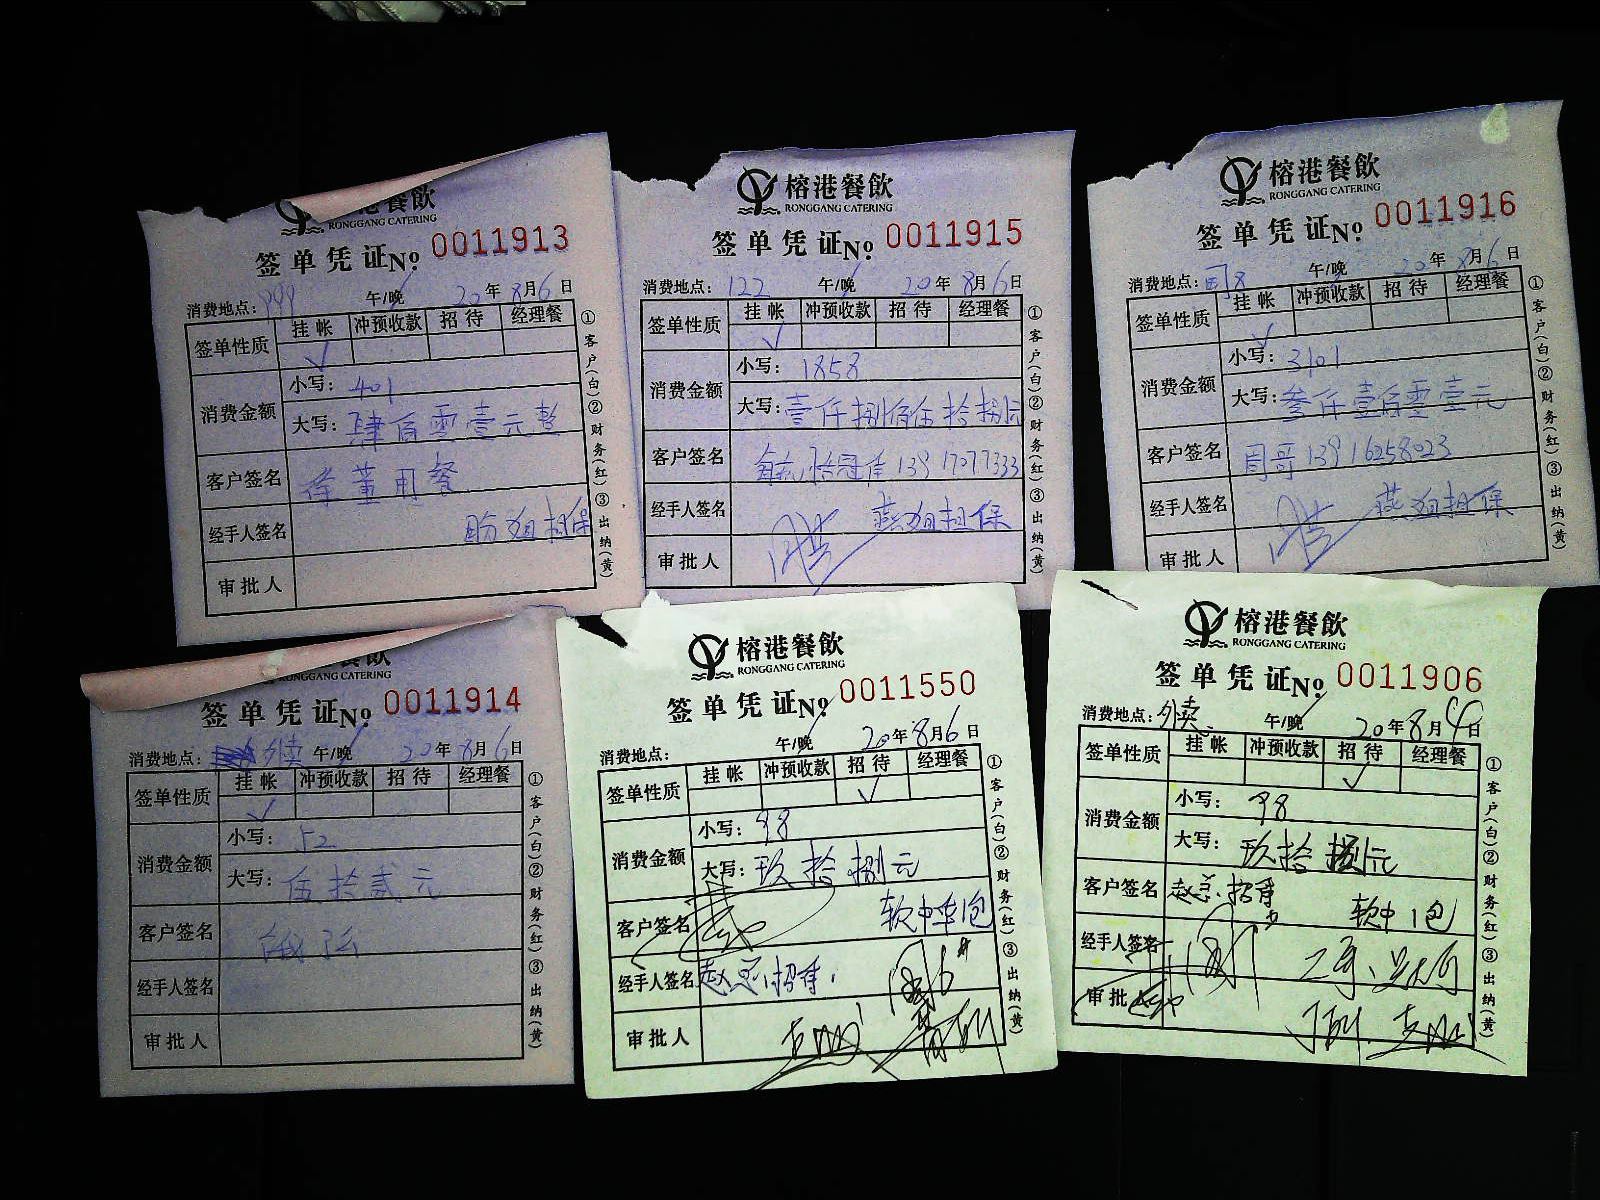 港餐飲
RONGGANG CATERING
签单凭证 No. 0011913
消费地点： 999 午/晚 20年8月6日
签单性质 挂帐 冲预收款 招待 经理餐
✓
消费金额 小写： 401
大写： 肆佰零壹元整
客户签名 徐董用餐
经手人签名 担保
审批人
①客户(白)②财务(红)③出纳(黄)
榕港餐飲
RONGGANG CATERING
签单凭证 No. 0011915
消费地点： 122 午/晚 20年8月6日
签单性质 挂帐 冲预收款 招待 经理餐
✓
消费金额 小写： 1858
大写： 壹仟捌佰伍拾捌元
客户签名 13917077333
经手人签名 燕姐担保
审批人
①客户(白)②财务(红)③出纳(黄)
榕港餐飲
RONGGANG CATERING
签单凭证 No. 0011916
消费地点： 司8 午/晚 20年8月6日
签单性质 挂帐 冲预收款 招待 经理餐
✓
消费金额 小写： 3101
大写： 叁仟壹佰零壹元
客户签名 周哥 13916258023
经手人签名 燕姐担保
审批人
①客户(白)②财务(红)③出纳(黄)
餐飲
RONGGANG CATERING
签单凭证 No. 0011914
消费地点： 外卖 午/晚 20年8月6日
签单性质 挂帐 冲预收款 招待 经理餐
✓
消费金额 小写： 52
大写： 伍拾贰元
客户签名
经手人签名
审批人
①客户(白)②财务(红)③出纳(黄)
榕港餐飲
RONGGANG CATERING
签单凭证 No. 0011550
消费地点： 午/晚 20年8月6日
签单性质 挂帐 冲预收款 招待 经理餐
✓
消费金额 小写： 98
大写： 玖拾捌元
客户签名 软中华1包
经手人签名 赵总招待.
审批人
①客户(白)②财务(红)③出纳(黄)
榕港餐飲
RONGGANG CATERING
签单凭证 No. 0011906
消费地点： 外卖 午/晚 20年8月4日
签单性质 挂帐 冲预收款 招待 经理餐
✓
消费金额 小写： 98
大写： 玖拾捌元
客户签名 赵总招待 软中1包
经手人签名
审批
①客户(白)②财务(红)③出纳(黄)